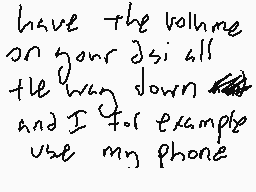 have the volume
on your dsi all
the way down
and I for example
use my phone